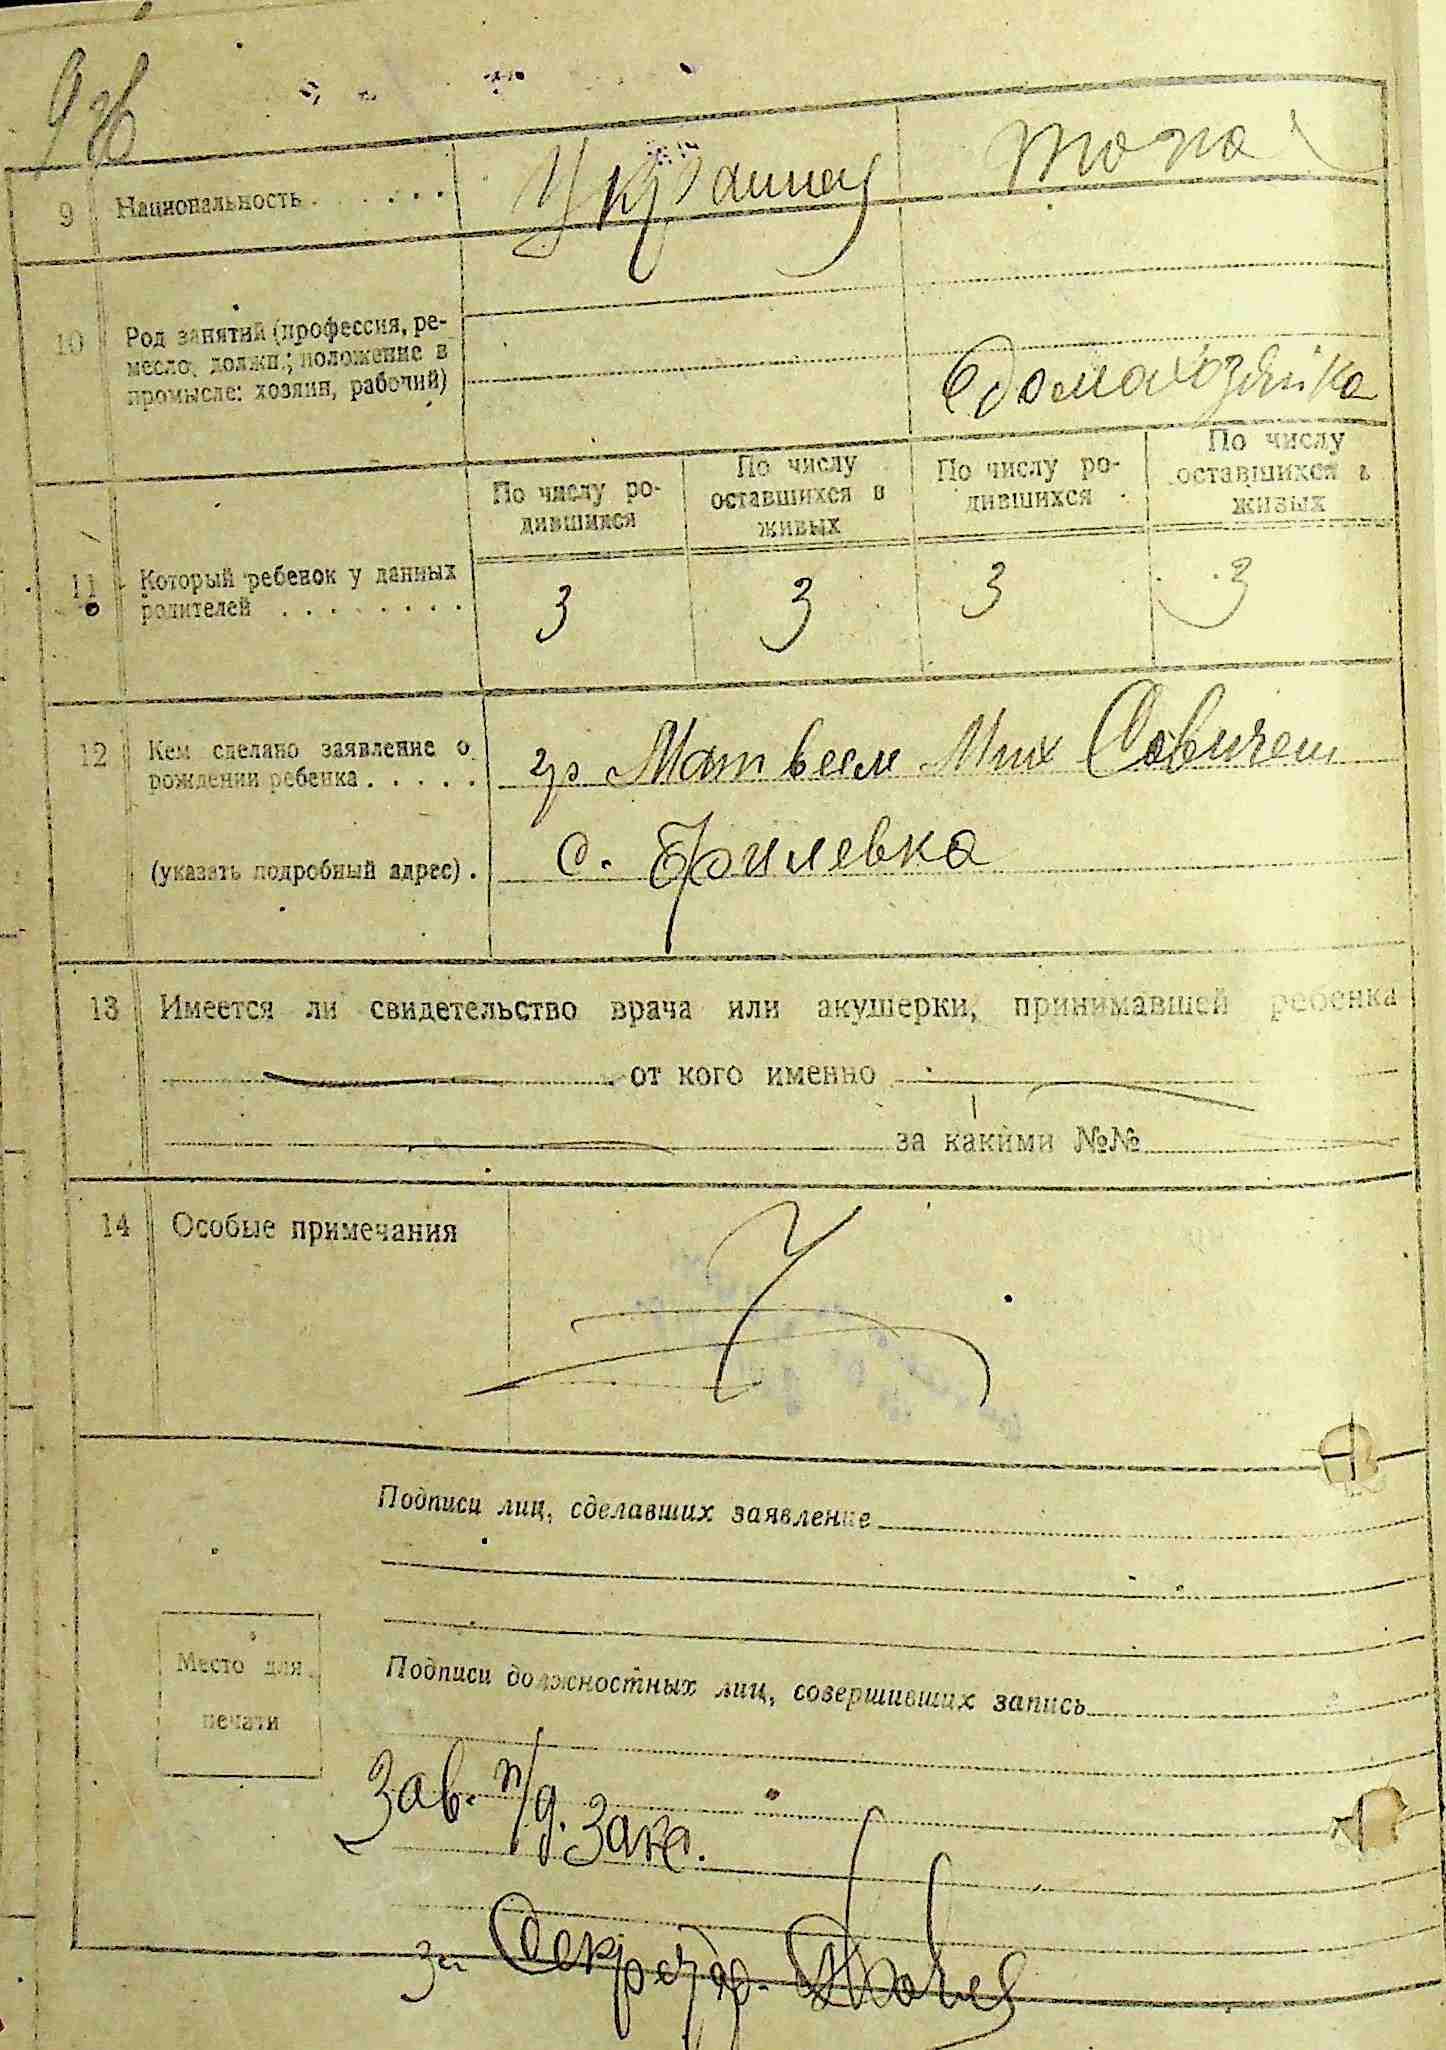 9
Национальность . . . . . .
Украинец
10
Род занятий (профессия, ре-
месло, должн.; положение в
промысле: хозяин, рабочий)
домахозяйка
11
Который ребенок у данных
родителей . . . . . . . .
По числу ро-
дившихся
По числу
оставшихся в
живых
По числу ро-
дившихся
По числу
оставшихся в
живых
3 3 3 3
12
Кем сделано заявление о
рождении ребенка . . . . .
гр Матвеем Мих Савичем
(указать подробный адрес) .
с. Брилевка
13 Имеется ли свидетельство врача или акушерки, принимавшей ребенка
от кого именно
за какими №№
14 Особые примечания
Подписи лиц, сделавших заявление
Место для
печати
Подписи должностных лиц, совершивших запись
Зав. п/д. Загс.
за Секретар.